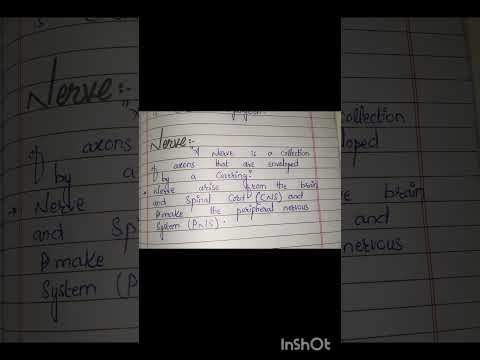 Nerve:-
A Nerve is a collection
axons that are enveloped
by a Covering.
Nerve arise from the brain
and Spinal Cord (CNS) and
make the peripheral nervous
System (PNS).
InShOt